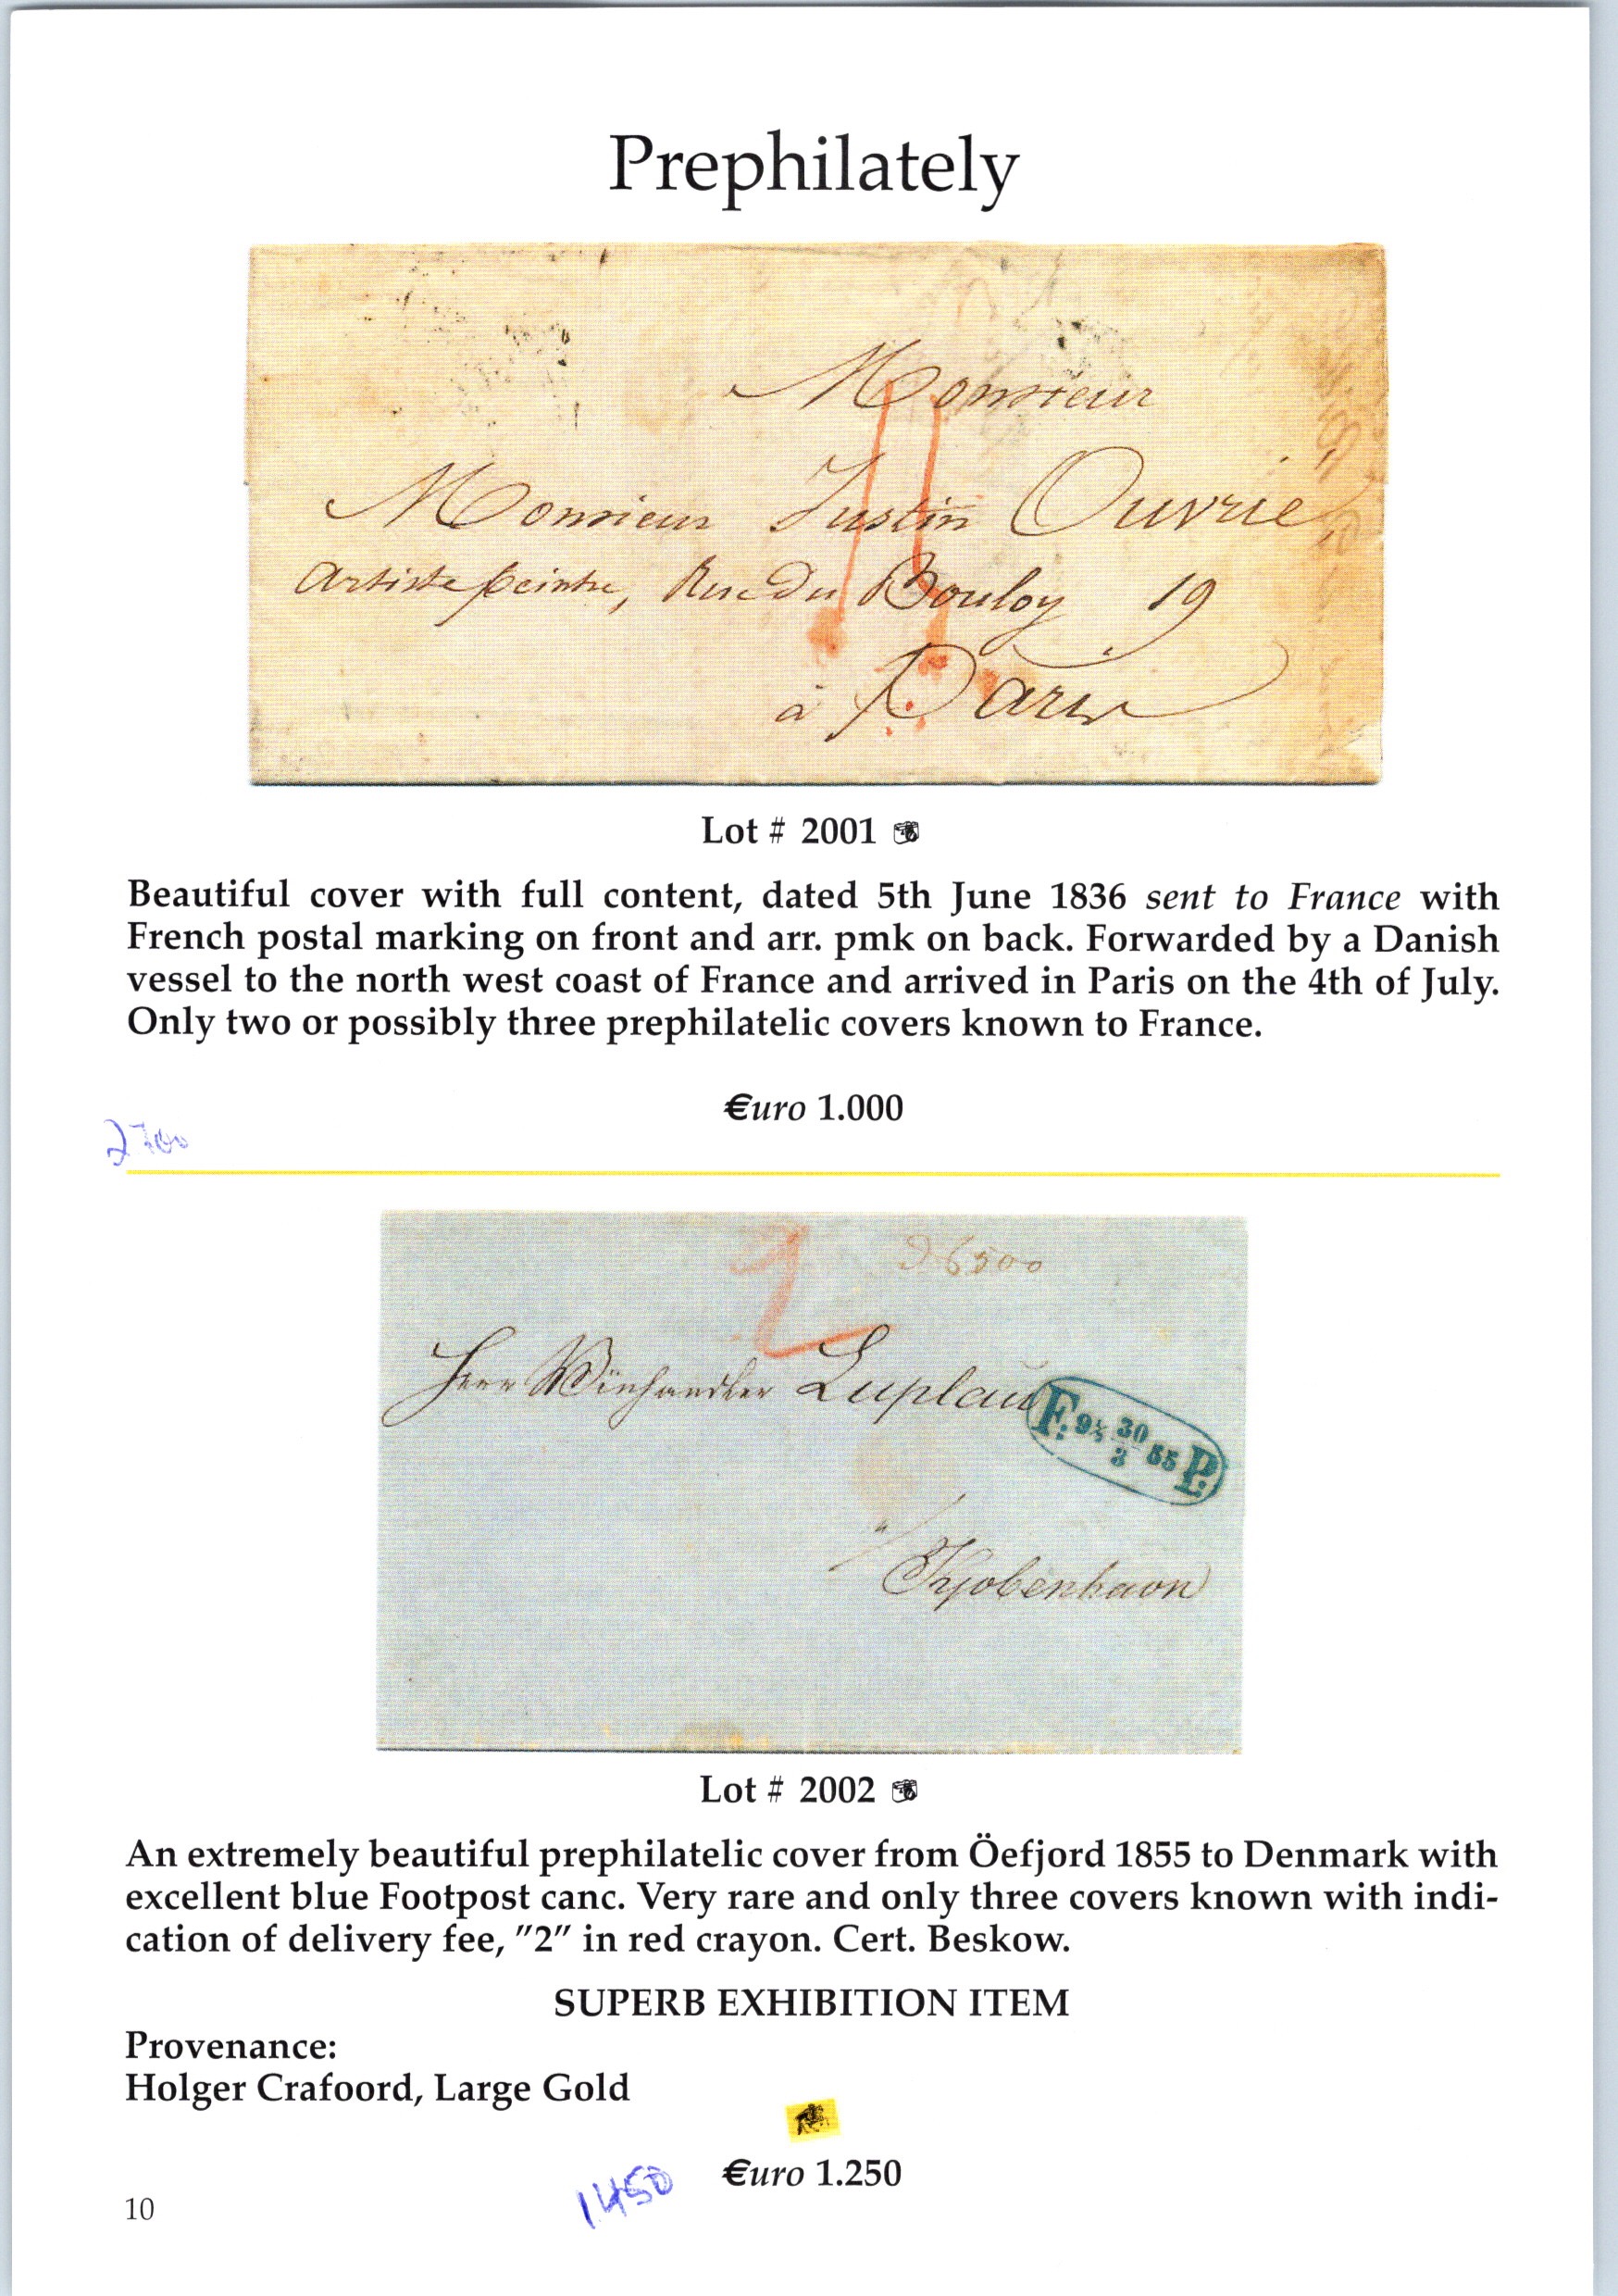 Prephilately
Monsieur
Monsieur Justin Ouvrié
Artiste peintre, Rue du Bouloy 19
à Paris
Lot # 2001
Beautiful cover with full content, dated 5th June 1836 sent to France with
French postal marking on front and arr. pmk on back. Forwarded by a Danish
vessel to the north west coast of France and arrived in Paris on the 4th of July.
Only two or possibly three prephilatelic covers known to France.
€uro 1.000
2700
2
6500
Herr Wiinhandler Luplau
F: 9½ 30/3 55 P.
Kjobenhavn
Lot # 2002
An extremely beautiful prephilatelic cover from Öefjord 1855 to Denmark with
excellent blue Footpost canc. Very rare and only three covers known with indi-
cation of delivery fee, "2" in red crayon. Cert. Beskow.
SUPERB EXHIBITION ITEM
Provenance:
Holger Crafoord, Large Gold
€uro 1.250
1450
10